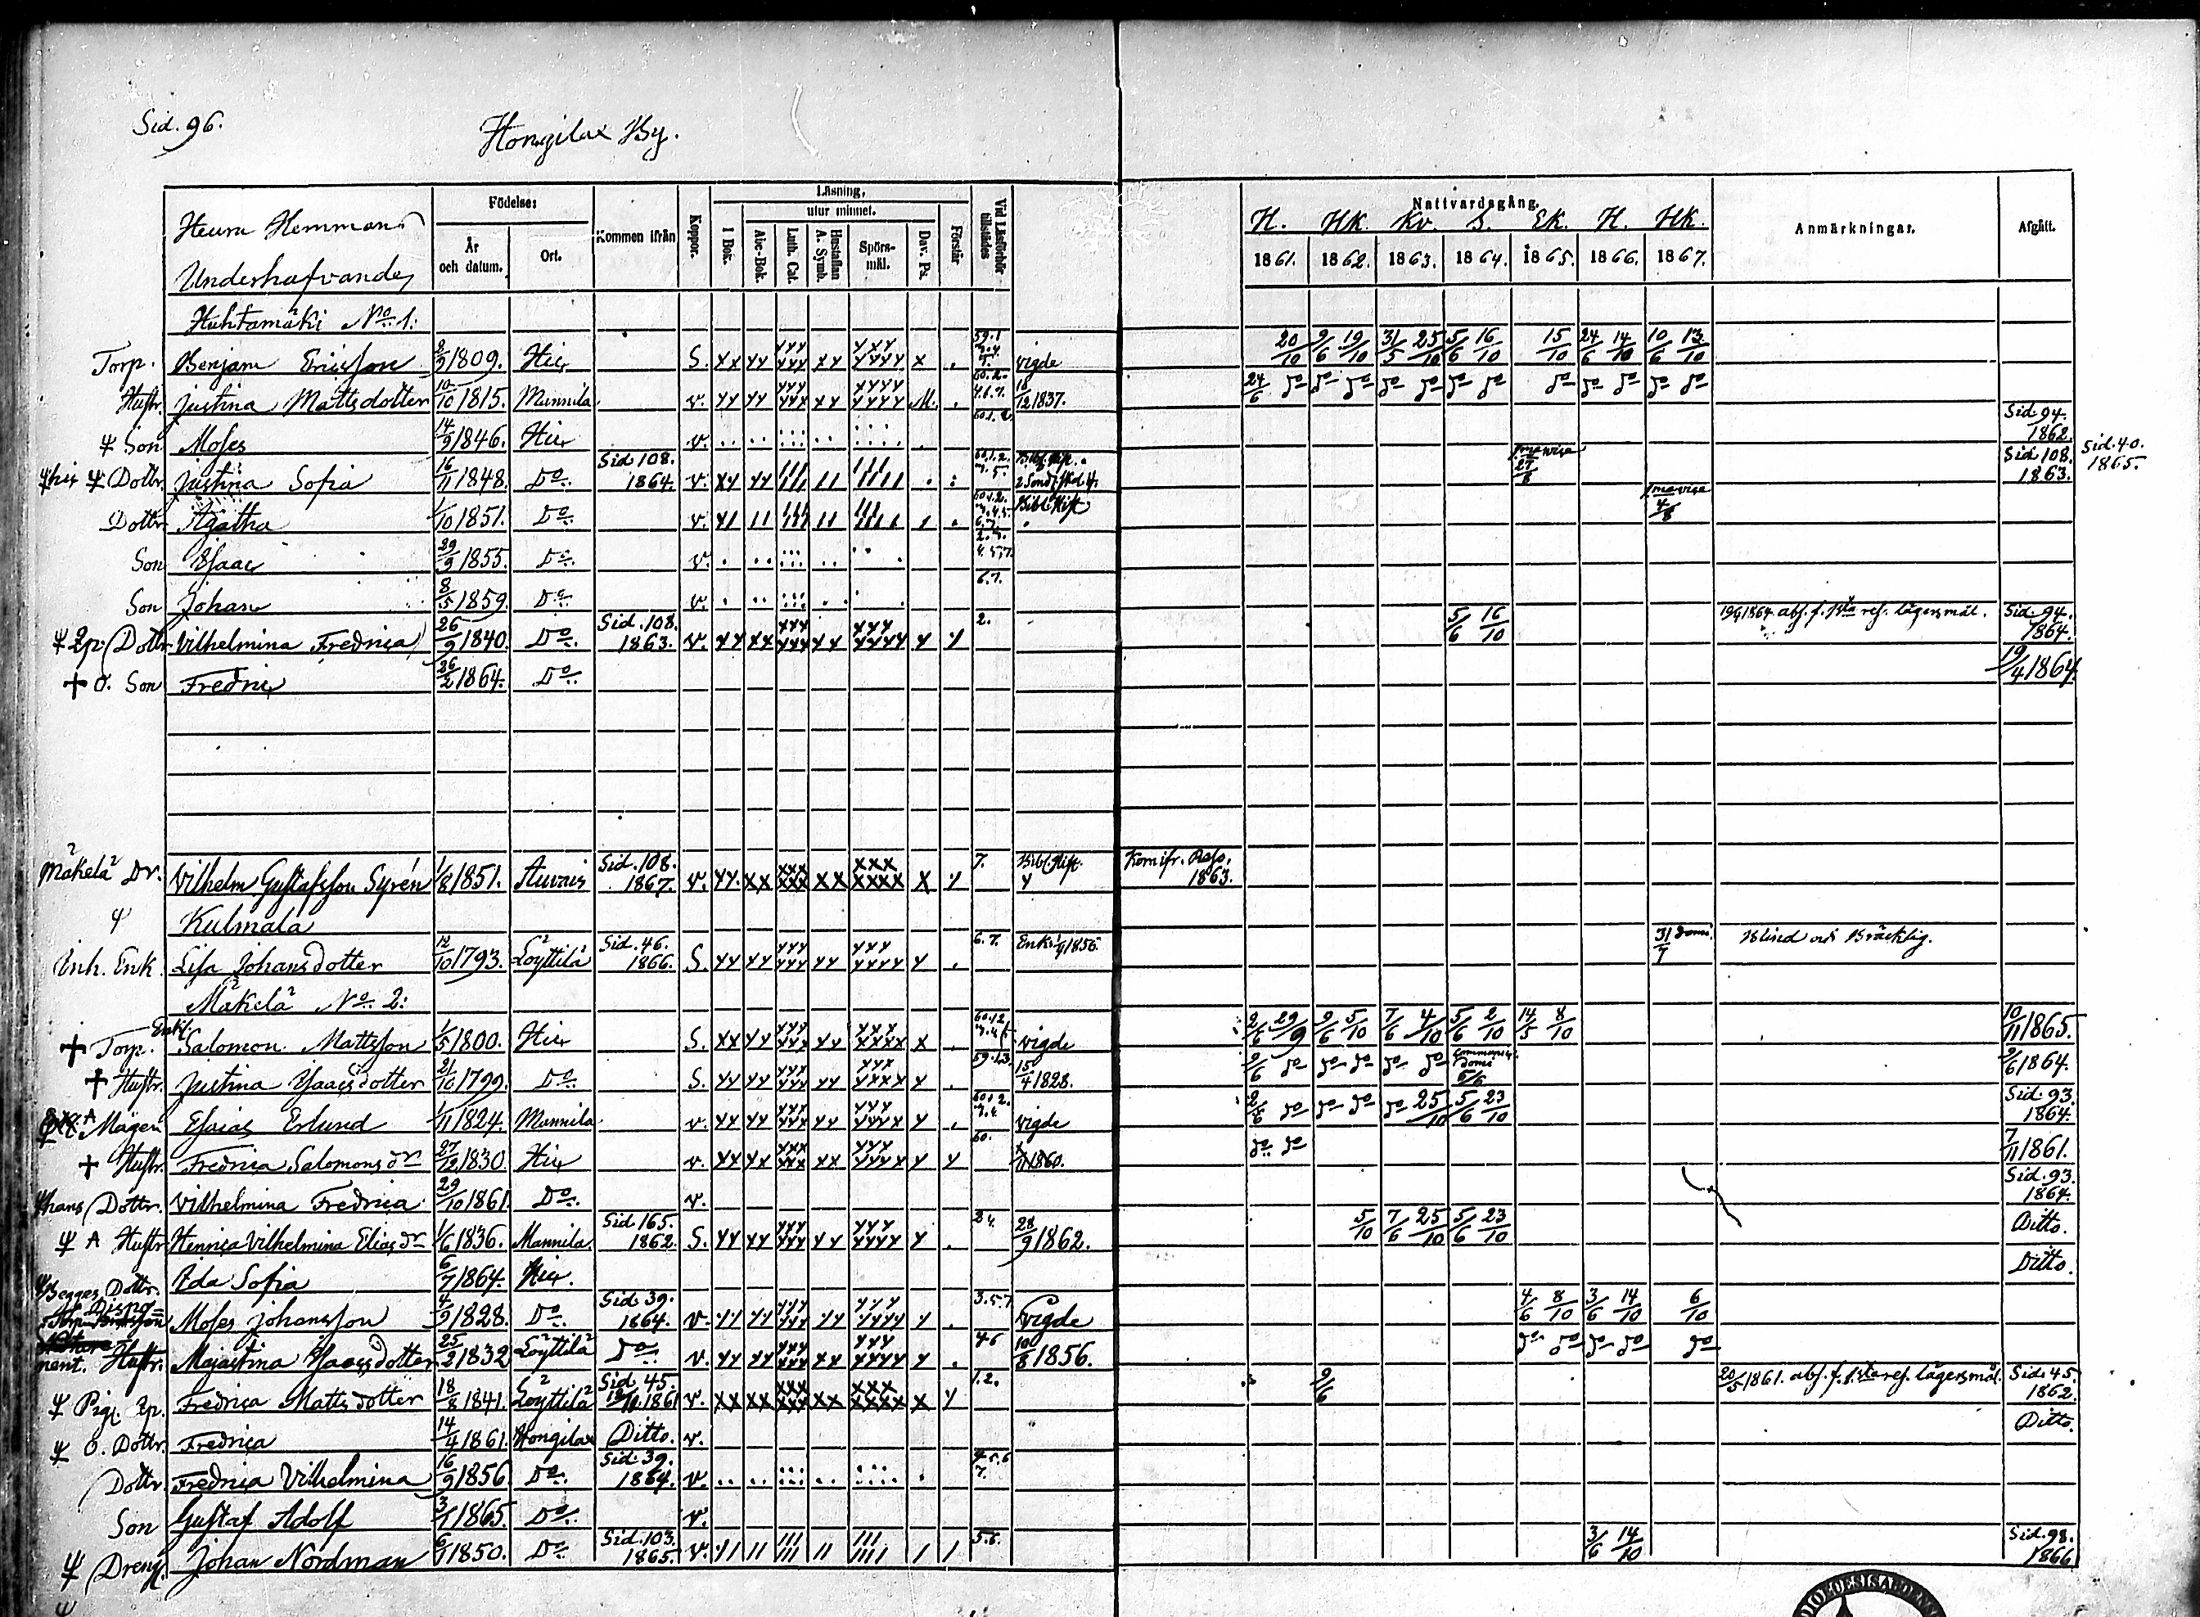 Sid. 96.
Hongilax By.
Heuru Hemmans
Underhafvande
Födelse:
År och datum.
Ort.
Kommen ifrån
Koppor.
Läsning,
utur minnet.
I Bok.
Abc-Bok.
Luth. Cat.
Hustaflan A. Symb.
Spörsmål.
Dav. Ps.
Förstår
Vid Läsförhör tillstädes
Nattvardsgång.
H. Hk. Kv. S. Ek. H. Hk.
1861. 1862. 1863. 1864. 1865. 1866. 1867.
Anmärkningar.
Afgått.
Huhtamäki No. 1:
Torp. Benjam Ericsson 2/9 1809. Hic S. vigde 20/10 9/6 19/10 31/5 25/10 5/6 16/10 15/10 24/6 14/10 10/6 13/10
Hustr. Justina Mattsdotter 10/10 1815. Munnila v. 18/12 1837. 24/6 do do do do do do do do do do do do
Son Moses 14/9 1846. Hic v. Sid. 94. 1862.
Dottr. Justina Sofia 16/11 1848. Do Sid 108. 1864. v. 27/8 Sid. 108. 1863. Sid. 40. 1865.
Dottr. Agatha 1/10 1851. Do v. Bibl. Hist 4/8
Son Isaac 29/9 1855. Do v.
Son Johan 8/5 1859. Do v. 6.7.
Dottr. Vilhelmina Fredrica 26/9 1840. Do Sid. 108. 1863. v. 2. 5/6 16/10 19/4 1864. abs. f. 1sta res. lägersmål. Sid. 94. 1864.
O. Son Fredric 26/2 1864. Do 19/4 1864.
Mäkelä Dr. Vilhelm Gustafsson Syrén 1/8 1851. Auvais Sid. 108. 1867. v. 7. Bibl. Hist. Kom ifr. 1863.
Kulmala
Inh. Enk. Lisa Johansdotter 12/10 1793. Löyttilä Sid. 46. 1866. S. 6.7. Enka 1856. Blind och bräcklig.
Mäkelä No. 2:
Enkl. Torp. Salomon Mattsson 1/5 1800. Hic S. vigde 2/6 29/9 9/6 5/10 7/6 4/10 5/6 2/10 14/5 8/10 10/11 1865.
Hustr. Justina Isaacsdotter 21/10 1799. Do S. 15/4 1828. 2/6 do do do do do domi 5/6 9/6 1864.
Mågen Esaias Erlund 1/11 1824. Munnila v. vigde 2/6 do do do do 25/10 5/6 23/10 Sid. 93. 1864.
Hustr. Fredrica Salomonsdr 27/12 1830. Hic v. 60. 1860. do do 7/11 1861.
Dottr. Vilhelmina Fredrica 29/10 1861. Do v. Sid. 93. 1864.
Hustr Henrica Vilhelmina Eliasdr 1/6 1836. Mannila. Sid 165. 1862. S. 28/9 1862. 5/10 7/6 25/10 5/6 23/10 Ditto.
Begges Dottr. Ida Sofia 6/7 1864. Hic. Ditto.
Moses Johansson 4/9 1828. Do Sid 39. 1864. v. 3.5.7 vigde 4/6 8/10 3/6 14/10 6/10
Hustr. Majastina Isaacsdotter 25/2 1832 Löyttilä Do v. 46 1856. do do do do do
Pig. Fredrica Mattsdotter 18/8 1841. Löyttilä Sid 45. 1861 v. 1.2. 9/6 20/5 1861. abs. f. 1sta res. lägersmål. Sid. 45. 1862.
O. Dottr. Fredrica 14/4 1861. Hongilax Ditto. v. Ditto.
Dottr. Fredrica Vilhelmina 16/9 1856. Do Sid. 39. 1864. v. 4.5.6 7.
Son Gustaf Adolf 3/1 1865. Do v.
Dreng. Johan Nordman 1850. Do Sid. 103. 1865. v. 5.6. 3/6 14/10 Sid. 98. 1866